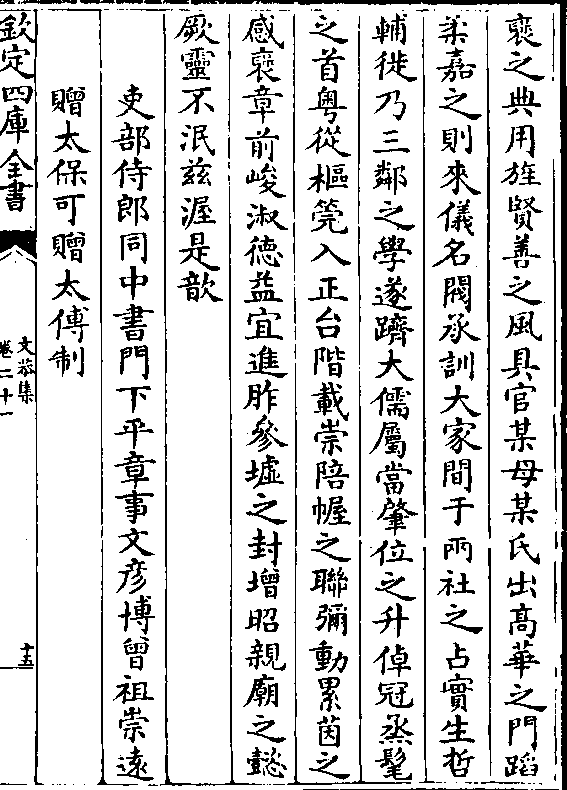 襃之典用旌賢善之風具官某母某氏出高華之門蹈
柔嘉之則來儀名閥承訓大家間于兩社之占實生哲
輔徙乃三鄰之學遂躋大儒屬當肇位之升倬冠烝髦
之首粤從樞筦入正台階載崇陪幄之聯彌動累茵之
感襃章前峻淑德益宜進胙參墟之封增昭親廟之懿
厥靈不泯兹渥是歆
吏部侍郎同中書門下平章事文彦博曾祖崇遠
贈太保可贈太傅制
欽定四庫全書
文恭集
卷二十一
十五